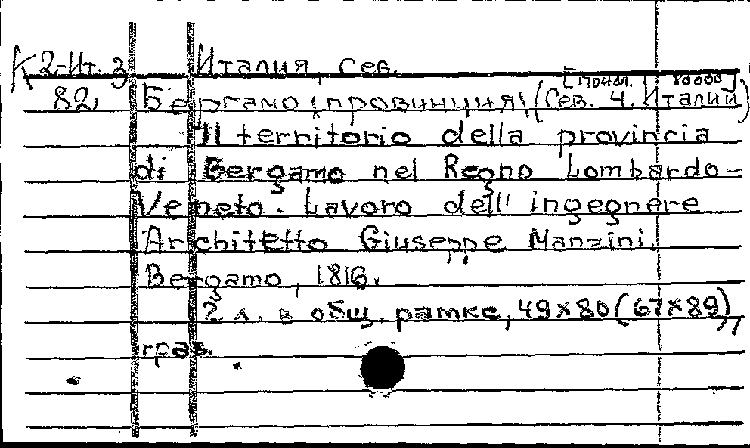 К2-Ит. 3 Италия, сев.
[1:80000]
82, Бергамо (провинция) (Сев. Ч. Италии)
Il territorio della provincia
di Bergamo nel Regno Lombardo-
Veneto. Lavoro dell' ingegnere
Architetto Giuseppe Manzini.
Bergamo, 1816.
2 л. в общ. рамке, 49x80 (67x89),
грав.